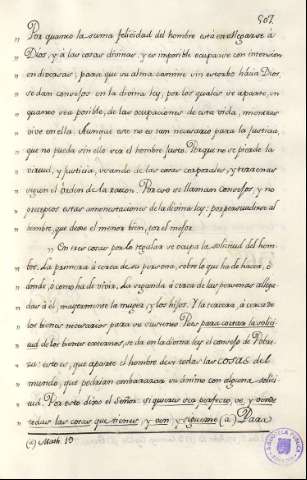 507.
" Por quanto la suma felicidad del hombre está en allegarse á
" Dios, y á las cosas divinas, y es imposible ocuparse con intension
" en diversas; para que su alma camine sin estorbo hácia Dios,
" se dan consejos en la divina ley, por los quales se aparte, en
" quanto sea posible, de las ocupaciones de esta vida, mientras
" vive en ella. Aunque esto no es tan necesario para la justicia,
" que no pueda sin ello ser el hombre justo. Porque no se pierde la
" virtud, y justicia, usando de las cosas corporales, y terrenas
" segun el órden de la razon. Por eso se llaman consejos, y no
" preceptos estas amonestaciones de la divina ley: por persuadirse al
" hombre, que dexe el menor bien, por el mejor.
" En tres cosas por lo regular se ocupa la solicitud del hom-
" bre. La primera á cerca de su persona, sobre lo que ha de hacer, ó
" donde, ó como ha de vivir. La segunda á cerca de las personas allega-
" das á él, mayormente la muger, y los hijos. Y la tercera, á cerca de
" los bienes necesarios para su sustento. Pues para cortar la solici-
" tud de los bienes exteriores, se da en la divina ley el consejo de Pobre-
" za: esto es, que aparte el hombre de sí todas las cosas del
" mundo, que pudieran embarazar su ánimo con alguna solici-
" tud. Por esto dixo el Señor: si quieres ser perfecto, ve, y vende
" todas las cosas que tienes, y ven, y sigueme (a) Para
(a) Math 19
BIBLIOTECA PUBLICA